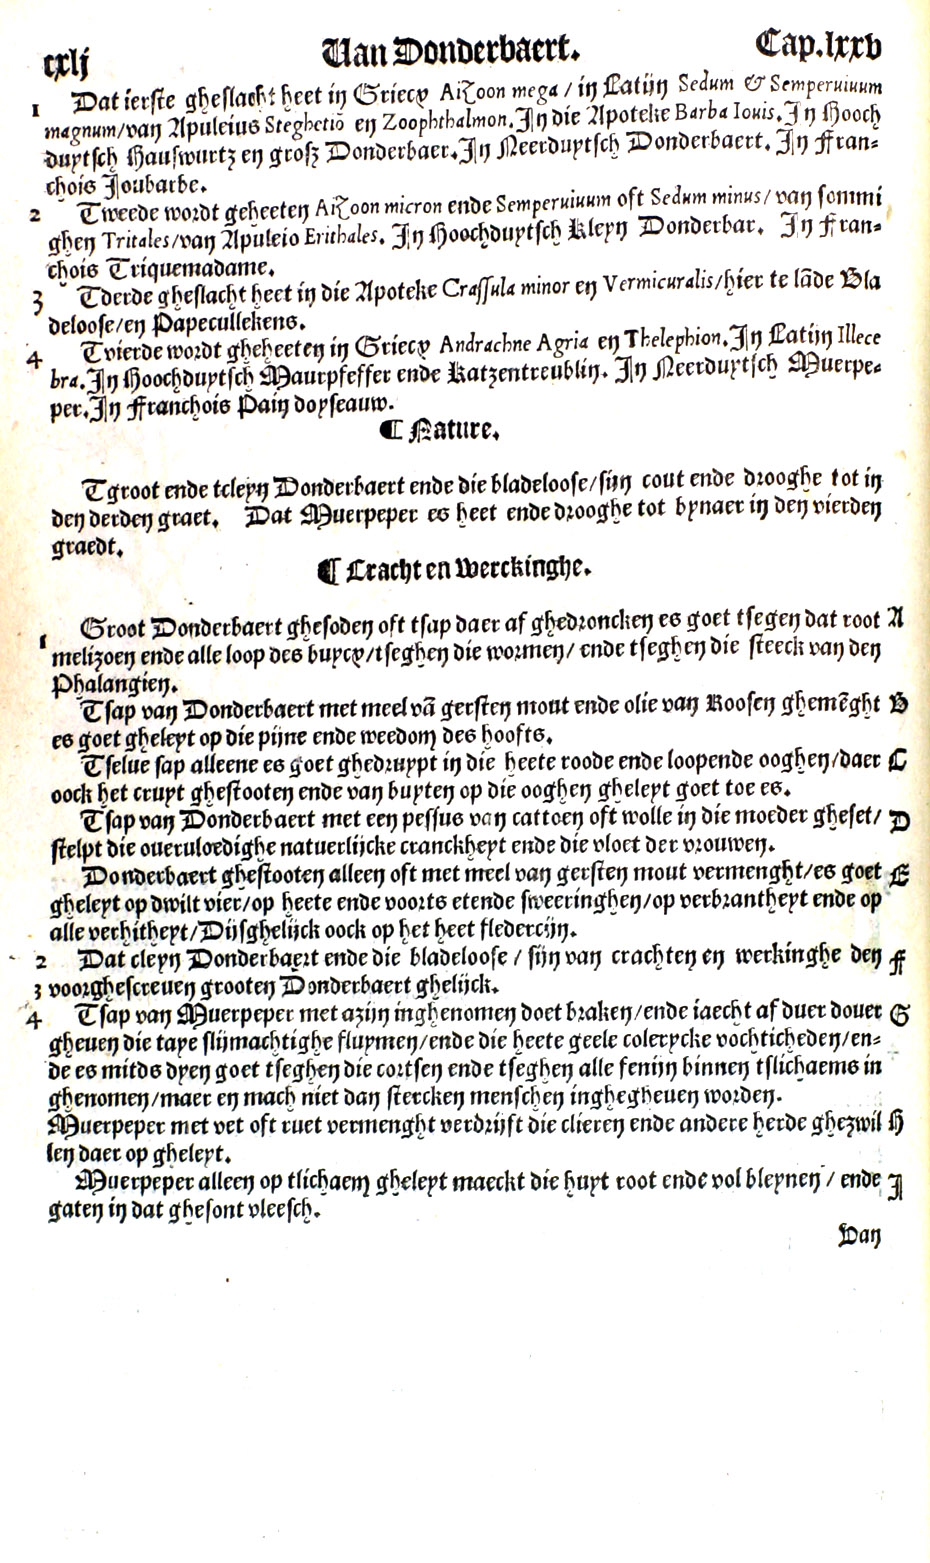 cxlj Van Donderbaert. Cap.lxxv
1 Dat ierste gheslacht heet in Griecx Aizoon mega / in Latijn Sedum & Semperuiuum
magnum/van Apuleius Steghetiõ en Zoophthalmon. In die Apoteke Barba Iouis. In Hooch
duytsch Hauswurtz en grosz Donderbaer. In Neerduytsch Donderbaert. In Fran-
chois Joubarbe.
2 Tweede wordt geheeten Aizoon micron ende Semperuiuum oft Sedum minus/ van sommi
ghen Tritales/van Apuleio Erithales. In Hoochduytsch Kleyn Donderbar. In Fran-
chois Triquemadame.
3 Tderde gheslacht heet in die Apoteke Crassula minor en Vermicuralis/hier te lãde Bla
deloose/en Papecullekens.
4 Tvierde wordt gheheeten in Griecx Andrachne Agria en Thelephion. In Latijn Illece
bra. In Hoochduytsch Maurpfeffer ende Katzentreublin. In Neerduytsch Muerpe-
per. In Franchois Pain doyseauw.
¶ Nature.
Tgroot ende tcleyn Donderbaert ende die bladeloose/sijn cout ende drooghe tot in
den derden graet. Dat Muerpeper es heet ende drooghe tot bynaer in den vierden
graedt.
¶ Cracht en Werckinghe.
1 Groot Donderbaert ghesoden oft tsap daer af ghedroncken es goet tsegen dat root A
melizoen ende alle loop des buycx/tseghen die wormen/ ende tseghen die steeck van den
Phalangien.
Tsap van Donderbaert met meel vã gersten mout ende olie van Roosen ghemẽght B
es goet gheleyt op die pijne ende weedom des hoofts.
Tselue sap alleene es goet ghedruypt in die heete roode ende loopende ooghen/daer C
oock het cruyt ghestooten ende van buyten op die ooghen gheleyt goet toe es.
Tsap van Donderbaert met een pessus van cattoen oft wolle in die moeder gheset/ D
stelpt die oueruloedighe natuerlijcke cranckheyt ende die vloet der vrouwen.
Donderbaert ghestooten alleen oft met meel van gersten mout vermenght/es goet E
gheleyt op dwilt vier/op heete ende voorts etende sweeringhen/op verbrantheyt ende op
alle verhitheyt/Dijsghelijck oock op het heet fledercijn.
2 Dat cleyn Donderbaert ende die bladeloose / sijn van crachten en werkinghe den F
3 voorghescreuen grooten Donderbaert ghelijck.
4 Tsap van Muerpeper met azijn inghenomen doet braken/ende iaecht af duer douer G
gheuen die taye slijmachtighe fluymen/ende die heete geele colerycke vochticheden/en-
de es mitds dyen goet tseghen die cortsen ende tseghen alle fenijn binnen tslichaems in
ghenomen/maer en mach niet dan stercken menschen inghegheuen worden.
Muerpeper met vet oft ruet vermenght verdrijft die clieren ende andere herde ghezwil H
len daer op gheleyt.
Muerpeper alleen op tlichaem gheleyt maeckt die huyt root ende vol bleynen / ende J
gaten in dat ghesont vleesch.
Van